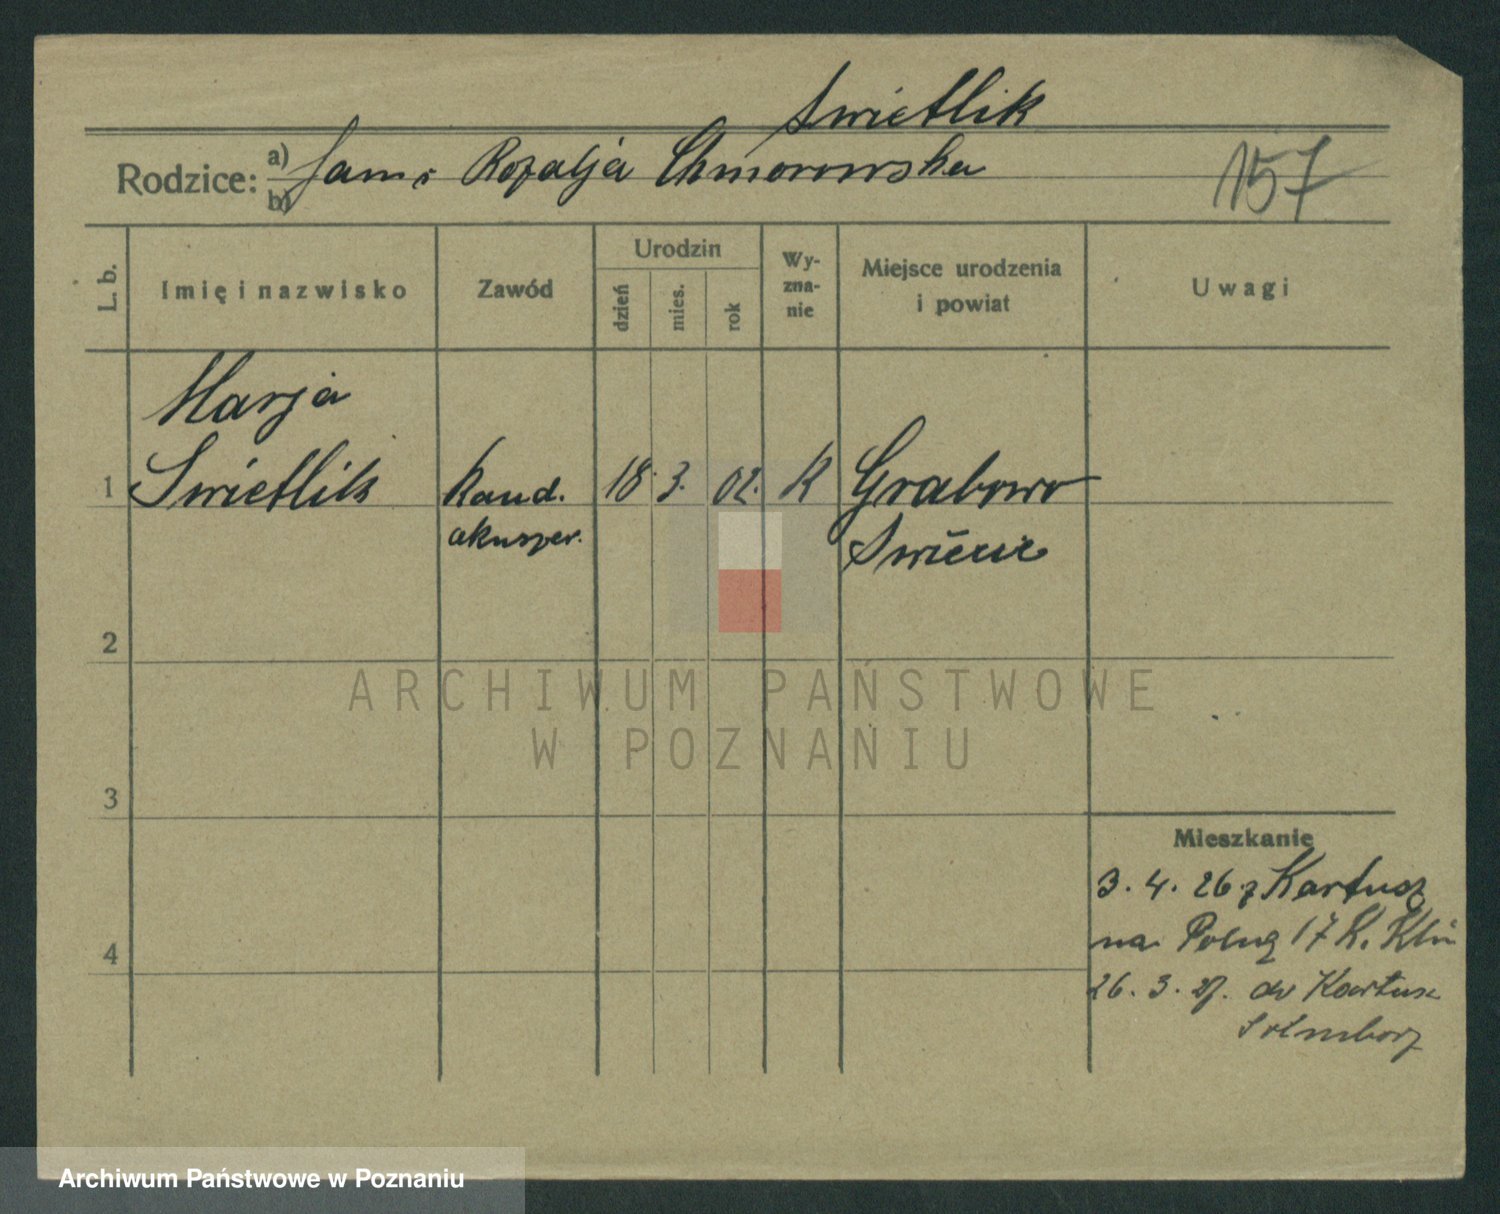 Swietlik
Rodzice: a) Jan i Rozalja Chmorowska
b)
157
L. b.
Imię i nazwisko
Zawód
Urodzin
dzień
mies.
rok
Wy-
zna-
nie
Miejsce urodzenia
i powiat
Uwagi
Marja
1 Swietlik Kand. 18. 3. 02. K Grabowo
akuszer. Swiecie
2
3
4
ARCHIWUM PAŃSTWOWE
W POZNANIU
Mieszkanie
3. 4. 26 z Kartuz
na Polną 17 K. Klin
26. 3. 27. do Kartuz
Archiwum Państwowe w Poznaniu